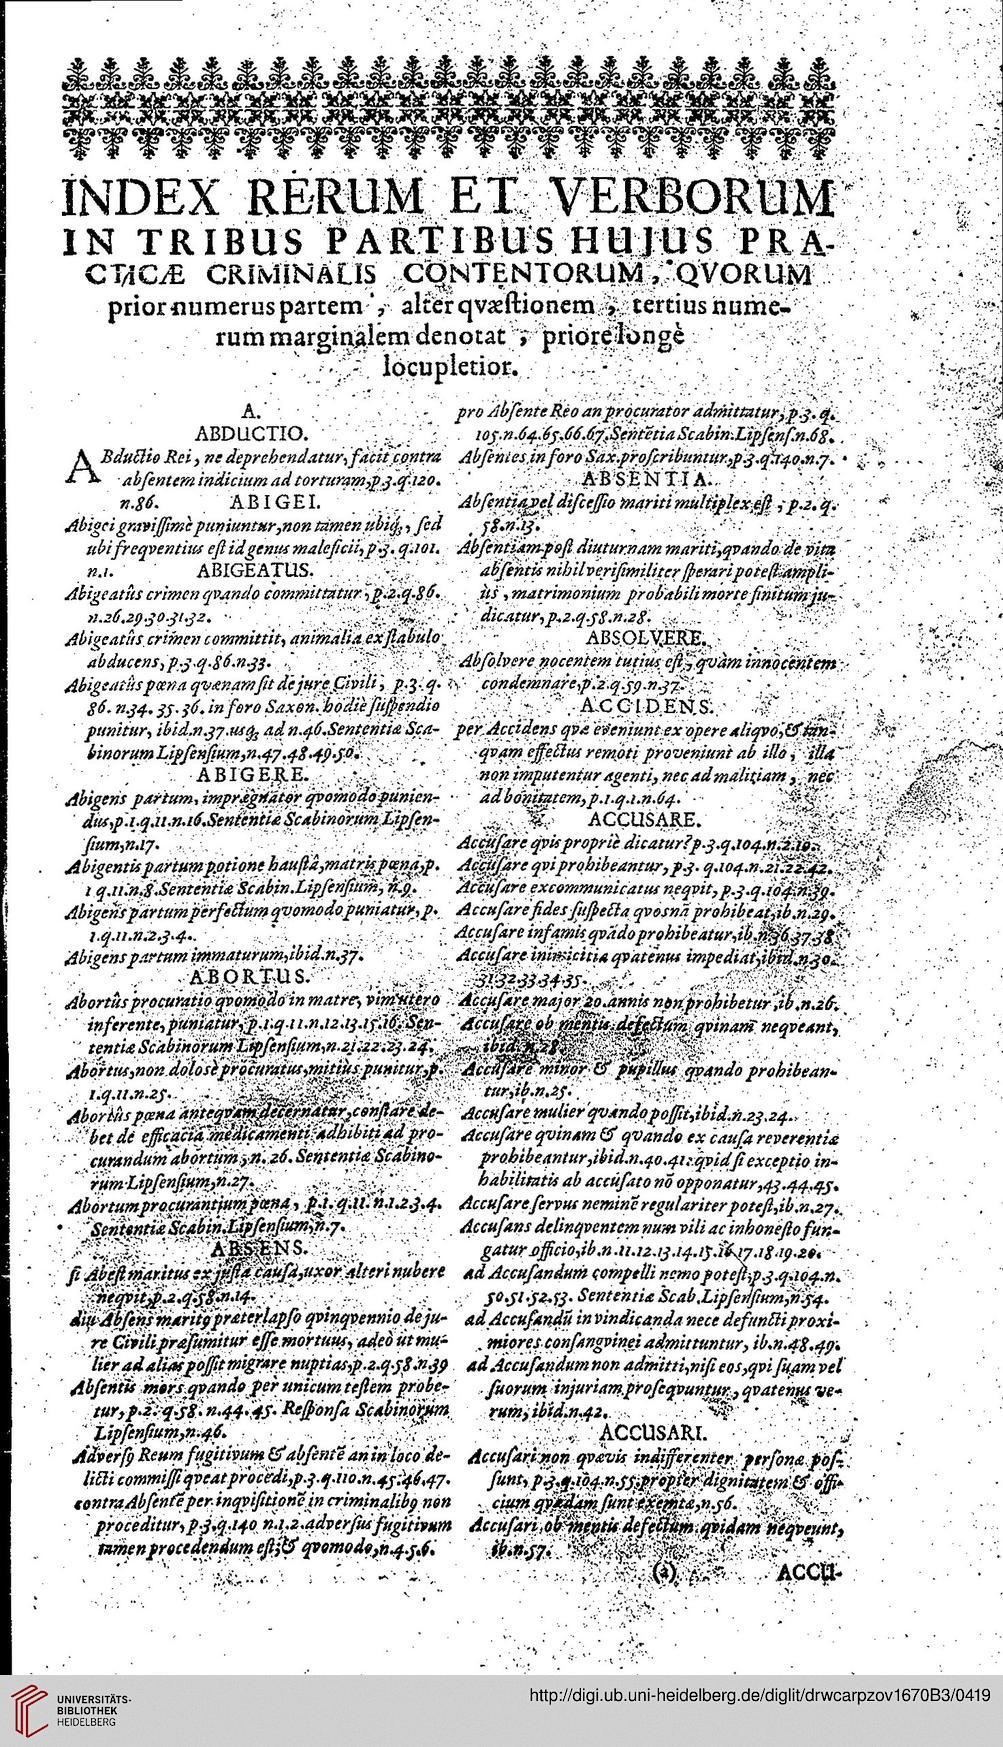 INDEX RERUM ET VERBORUM
IN TRIBUS PARTIBUS HUJUS PRA-
CTICÆ CRIMINALIS CONTENTORUM, QVORUM
prior numerus partem, alter qvæſtionem, tertius nume-
rum marginalem denotat, priore longè
locupletior.
A.
ABDUCTIO.
ABductio Rei, ne deprehendatur, facit contra
abſentem indicium ad torturam, p.3.q.120.
n.86. ABIGEI.
Abigei graviſſimè puniuntur, non tamen ubiq;, ſed
ubi freqventius eſt id genus maleficii, p.3. q.101.
n.1. ABIGEATUS.
Abigeatûs crimen qvando committatur, p.2.q.86.
n.26.29.30.31.32.
Abigeatûs crimen committit, animalia ex ſtabulo
abducens, p.3.q.86.n.33.
Abigeatûs pœna qvænam ſit de jure Civili, p.3.q.
86. n.34. 35. 36. in foro Saxon. hodiè ſuſpendio
punitur, ibid.n.37.usq; ad n.46.Sententiæ Sca-
binorum Lipſenſium, n.47.48.49.50.
ABIGERE.
Abigens partum, imprægnator qvomodo punien-
dus, p.1.q.11.n.16.Sententiæ Scabinorum Lipſen-
ſium, n.17.
Abigentis partum potione hauſtâ, matris pœna, p.
1 q.11.n.8.Sententiæ Scabin.Lipſenſium, n.9.
Abigens partum perfectum qvomodo puniatur, p.
1.q.11.n.2.3.4.
Abigens partum immaturum, ibid.n.37.
ABORTUS.
Abortûs procuratio qvomodo in matre, vim utero
inferente, puniatur, p.1.q.11.n.12.13.15.16. Sen-
tentiæ Scabinorum Lipſenſium, n.21.22.23.24.
Abortus, non dolosè procuratus, mitius punitur, p.
1.q.11.n.25.
Abortûs pœna anteqvam decernatur, conſtare de-
bet de efficacia medicamenti adhibiti ad pro-
curandum abortum, n. 26. Sententiæ Scabino-
rum Lipſenſium, n.27.
Abortum procurantium pœna, p.1.q.11.n.1.2.3.4.
Sententiæ Scabin.Lipſenſium, n.7.
ABSENS.
ſi Abeſt maritus ex juſta cauſa, uxor alteri nubere
neqvit, p.2.q.58.n.14.
diu Abſens maritꝰ præterlapſo qvinqvennio de ju-
re Civili præſumitur eſſe mortuus, adeò ut mu-
lier ad alias poſſit migrare nuptias, p.2.q.58.n.39
Abſentis mors qvando per unicum teſtem probe-
tur, p.2. q.58. n.44. 45. Reſponſa Scabinorum
Lipſenſium, n.46.
Adverſꝰ Reum fugitivum & abſentē an in loco de-
licti commiſſi qveat procedi, p.3.q.110.n.45.46.47.
contra Abſentē per inqviſitionē in criminalibꝰ non
proceditur, p.3.q.140 n.1.2.adverſus fugitivum
tamen procedendum eſt; & qvomodo, n.4.5.6.
pro Abſente Reo an procurator admittatur, p.3. q.
105.n.64.65.66.67.Sentētia Scabin.Lipſenſ.n.68.
Abſentes in foro Sax.proſcribuntur, p.3.q.140.n.7.
ABSENTIA.
Abſentia vel diſceſſio mariti multiplex eſt, p.2. q.
58.n.13.
Abſentiam poſt diuturnam mariti, qvando de vita
abſentis nihil veriſimiliter ſperari poteſt ampli-
ùs, matrimonium probabili morte finitum ju-
dicatur, p.2.q.58.n.28.
ABSOLVERE.
Abſolvere nocentem tutius eſt, quàm innocentem
condemnare, p.2.q.59.n.37.
ACCIDENS.
per Accidens qvæ eveniunt ex opere aliqvo, & tan-
qvam effectus remoti proveniunt ab illo, illa
non imputentur agenti, nec ad malitiam, nec
ad bonitatem, p.1.q.1.n.64.
ACCUSARE.
Accuſare qvis propriè dicatur? p.3.q.104.n.2.10.
Accuſare qvi prohibeantur, p.3. q.104.n.21.22.42.
Accuſare excommunicatus neqvit, p.3.q.104.n.39.
Accuſare fides ſuſpecta qvosnā prohibeat, ib.n.29.
Accuſare infamis qvādo prohibeatur, ib.n.36.37.38
Accuſare inimicitia qvatenus impediat, ibid.n.30.
31.32.33.34.35.
Accuſare major 20.annis non prohibetur, ib.n.26.
Accuſare ob mentis defectum qvinam neqveant,
ibid.n.28.
Accuſare minor & pupillus qvando prohibean-
tur, ib.n.25.
Accuſare mulier qvando poſſit, ibid.n.23.24.
Accuſare qvinam & qvando ex cauſa reverentiæ
prohibeantur, ibid.n.40.41.qvid ſi exceptio in-
habilitatis ab accuſato nō opponatur, 43.44.45.
Accuſare ſervus neminē regulariter poteſt, ib.n.27.
Accuſans delinqventem num vili ac inhoneſto fun-
gatur officio, ib.n.11.12.13.14.15.16.17.18.19.20.
ad Accuſandum compelli nemo poteſt, p.3.q.104.n.
50.51.52.53. Sententiæ Scab.Lipſenſium, n.54.
ad Accuſandū in vindicanda nece defuncti proxi-
miores conſangvinei admittuntur, ib.n.48.49.
ad Accuſandum non admitti, niſi eos, qvi ſuam vel
ſuorum injuriam proſeqvuntur, qvatenus ve-
rum, ibid.n.42.
ACCUSARI.
Accuſari non qvævis indifferenter perſonæ poſ-
ſunt, p.3.q.104.n.55.propter dignitatem & offi-
cium qvædam ſunt exemtæ, n.56.
Accuſari ob mentis defectum qvidam neqveunt,
ib.n.57.
(a) ACCU-
UNIVERSITÄTS-
BIBLIOTHEK
HEIDELBERG
http://digi.ub.uni-heidelberg.de/diglit/drwcarpzov1670B3/0419